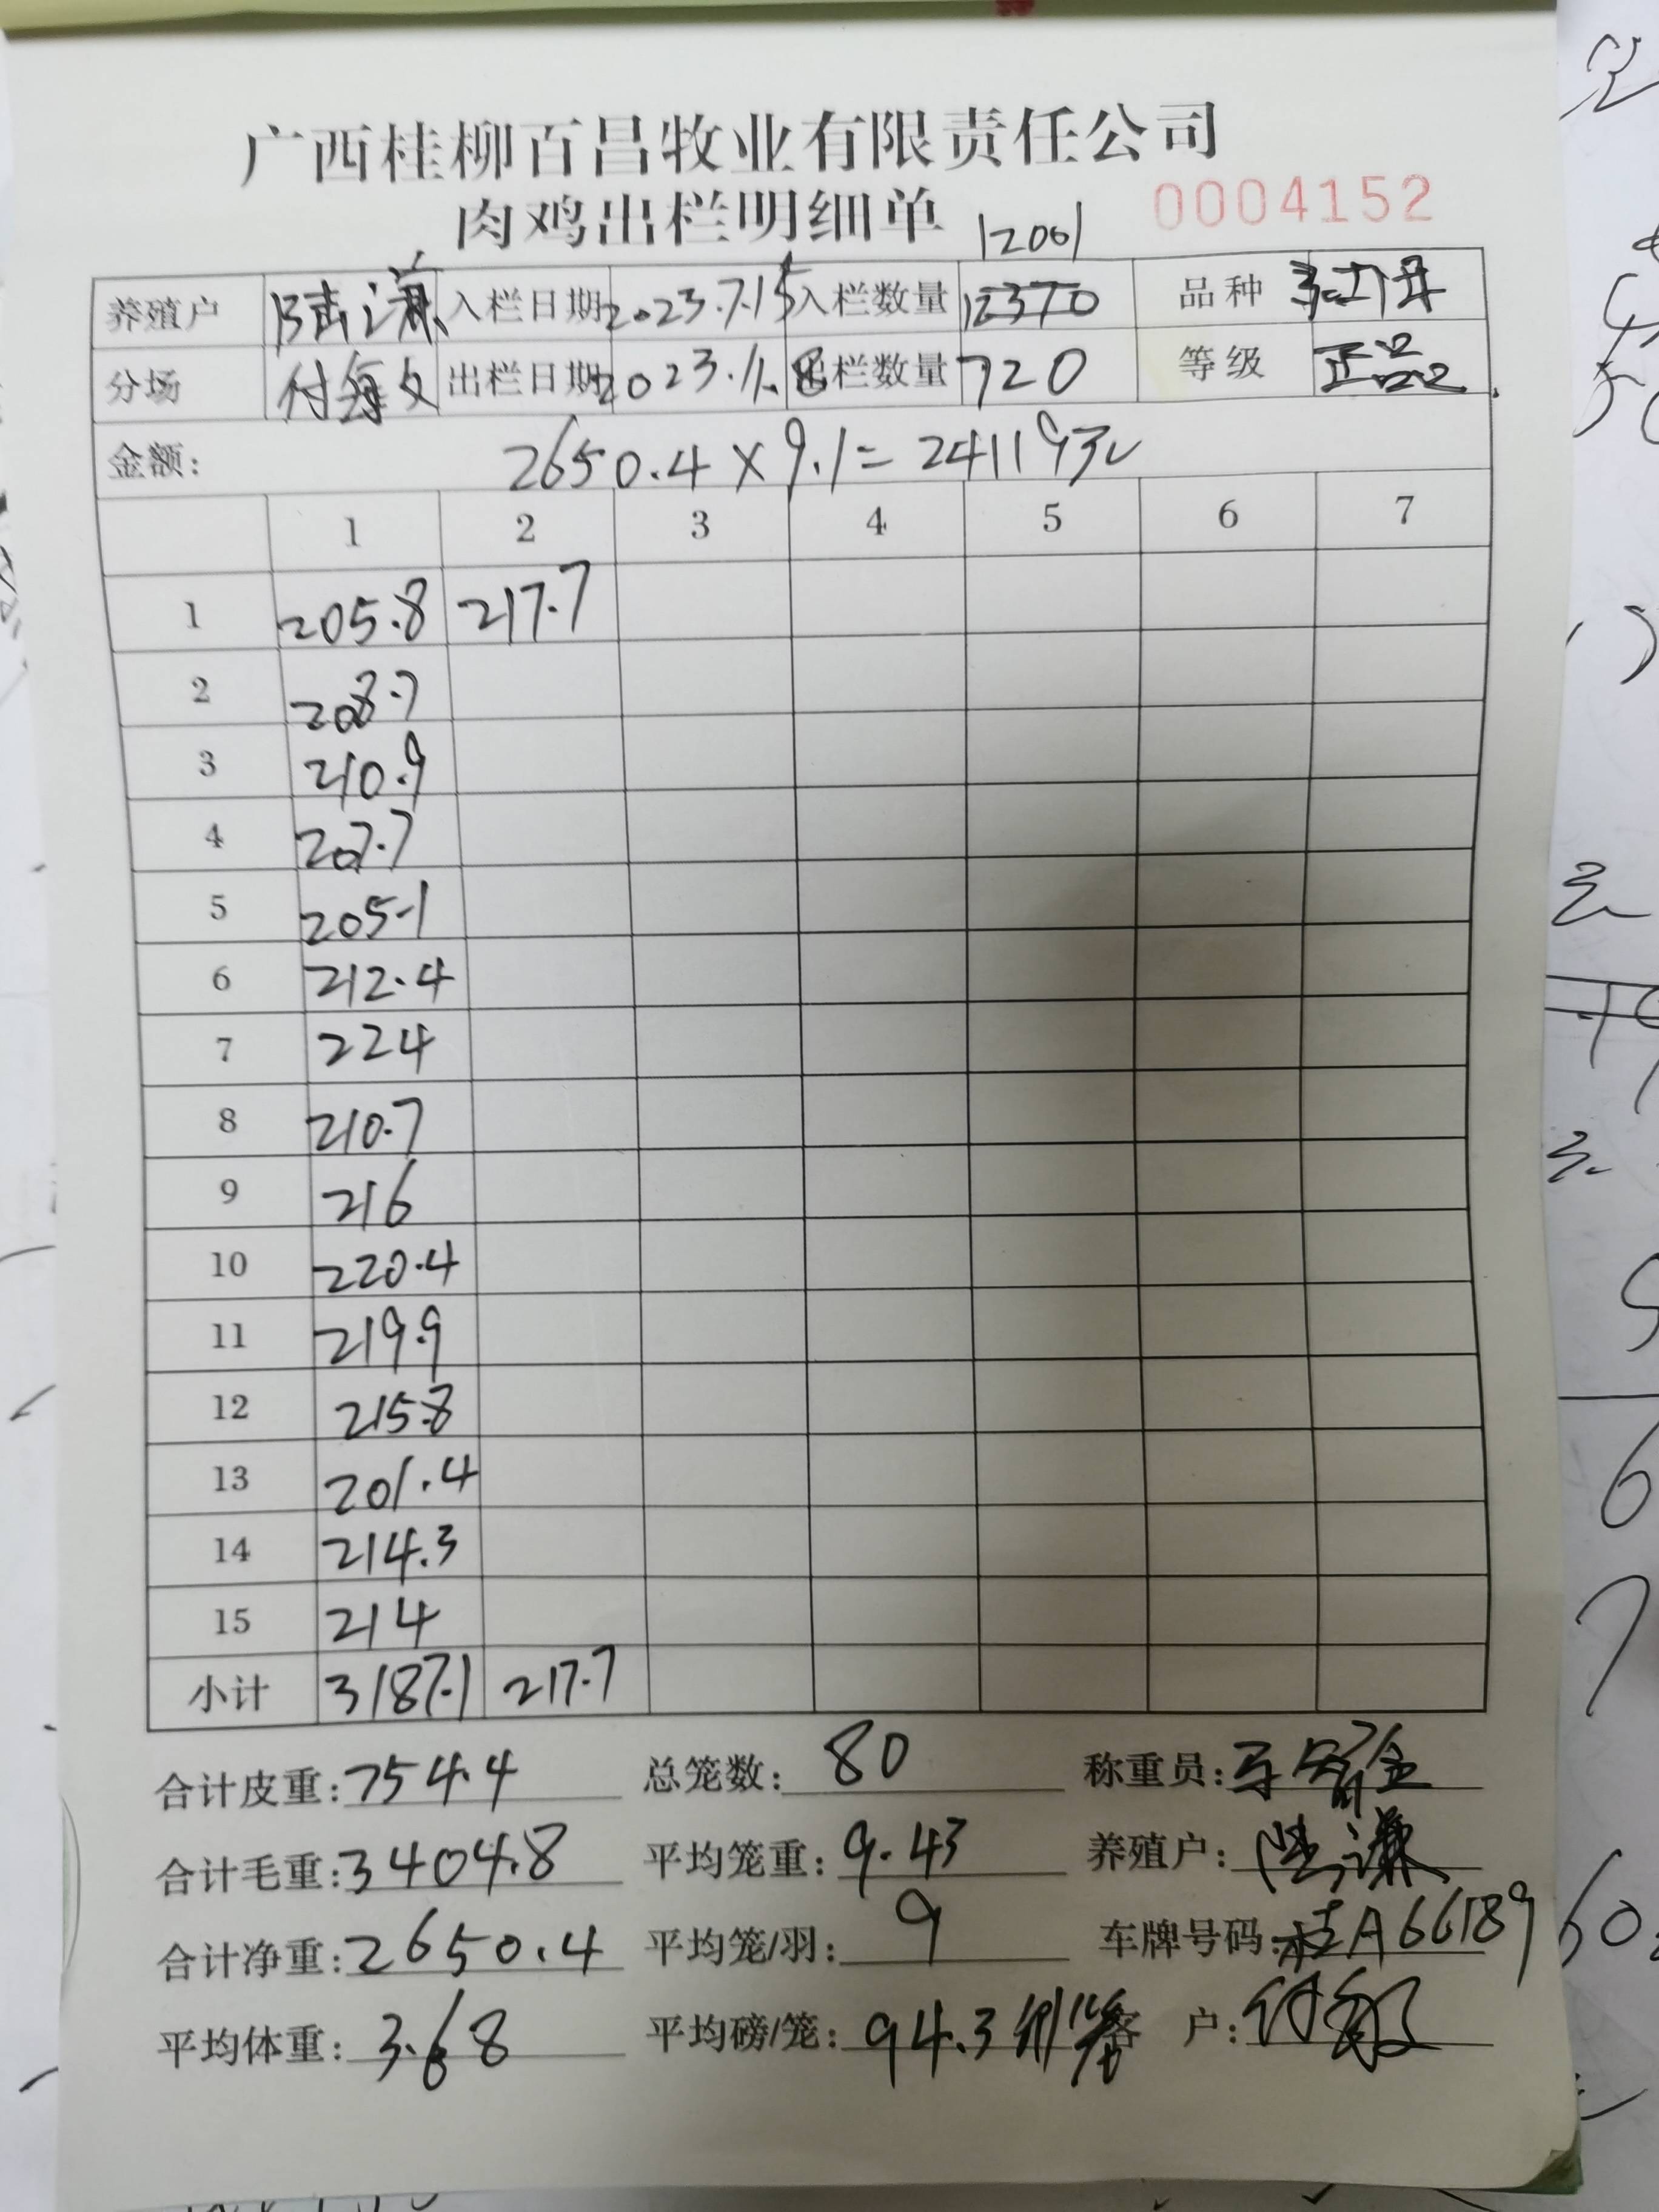 广西桂柳百昌牧业有限责任公司
肉鸡出栏明细单 12001 0004152
养殖户 陆谦 入栏日期 2023.7.15 入栏数量 12370 品种
分场 付 文 出栏日期 2023.11.8 出栏数量 720 等级 正品
金额: 2650.4×9.1=24119元
1 2 3 4 5 6 7
1 205.8 217.7
2 208.7
3 210.9
4 207.7
5 205.1
6 212.4
7 224
8 210.7
9 216
10 220.4
11 219.9
12 215.8
13 201.4
14 214.3
15 214
小计 3187.1 217.7
合计皮重: 754.4 总笼数: 80 称重员:
合计毛重: 3404.8 平均笼重: 9.43 养殖户: 陆谦
合计净重: 2650.4 平均笼/羽: 9 车牌号码: 桂A66189
平均体重: 3.68 平均磅/笼: 94.3 客 户: